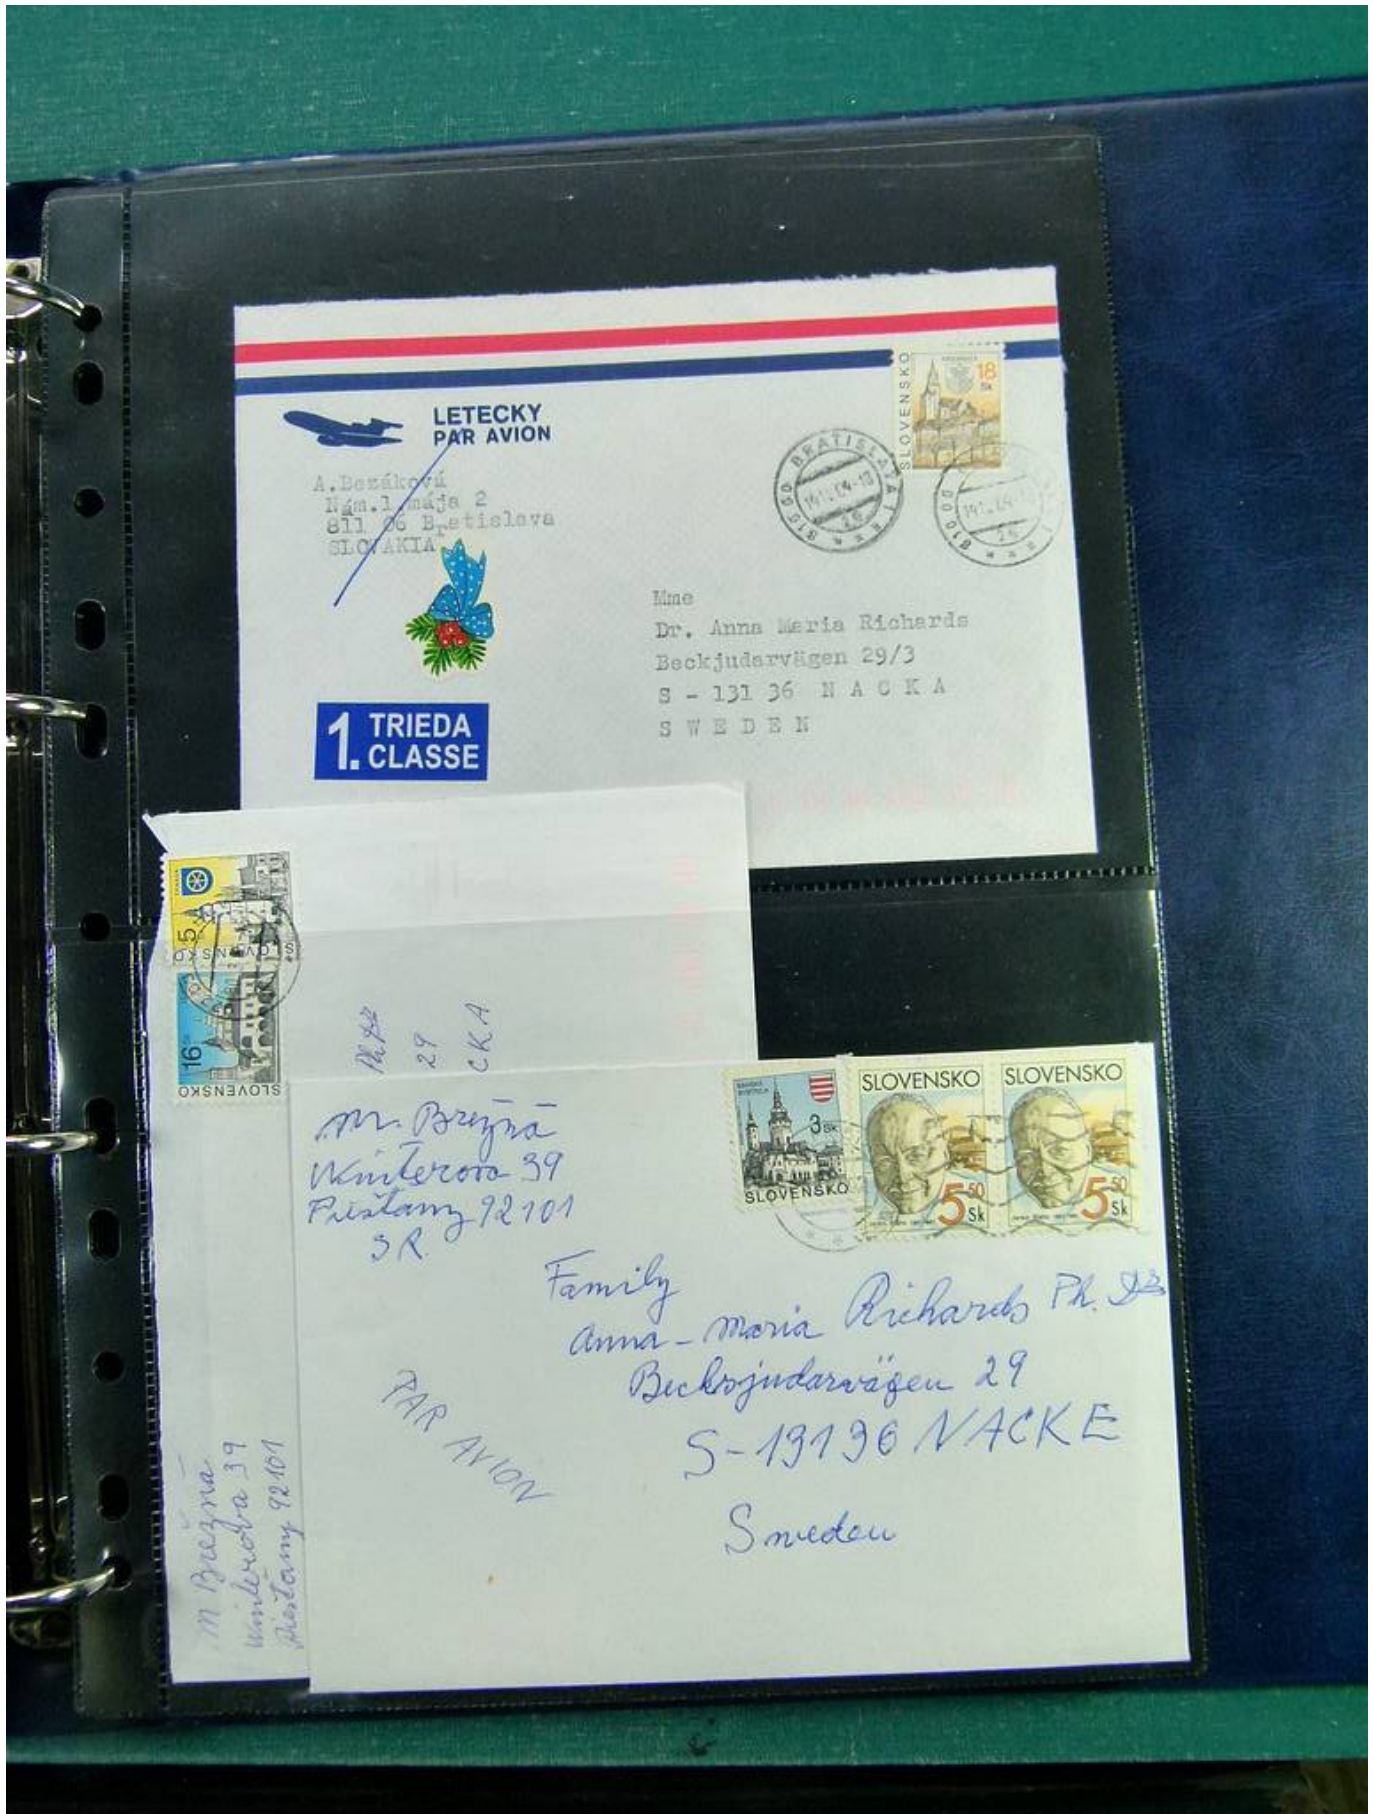 LETECKY
PAR AVION
A.Bezáková
Nám.1.mája 2
811 06 Bratislava
SLOVAKIA
SLOVENSKO
18
Sk
BRATISLAVA 1
81000
26
81000
26
Mme
Dr. Anna Maria Richards
Beckjudarvägen 29/3
S - 131 36 N A C K A
S W E D E N
1. TRIEDA
CLASSE
5
SLOVENSKO
16
SLOVENSKO
29
CKA
M. Brezná
Winterova 39
Piešťany 92101
SR
BANSKÁ
BYSTRICA
3 Sk
SLOVENSKO
SLOVENSKO
5 50
Sk
SLOVENSKO
5 50
Sk
Family
Anna-Maria Richards Ph. Dr
Becksjudarvägen 29
S-13136 NACKE
Sweden
PAR AVION
M Brezná
Winterova 39
Piešťany 92101